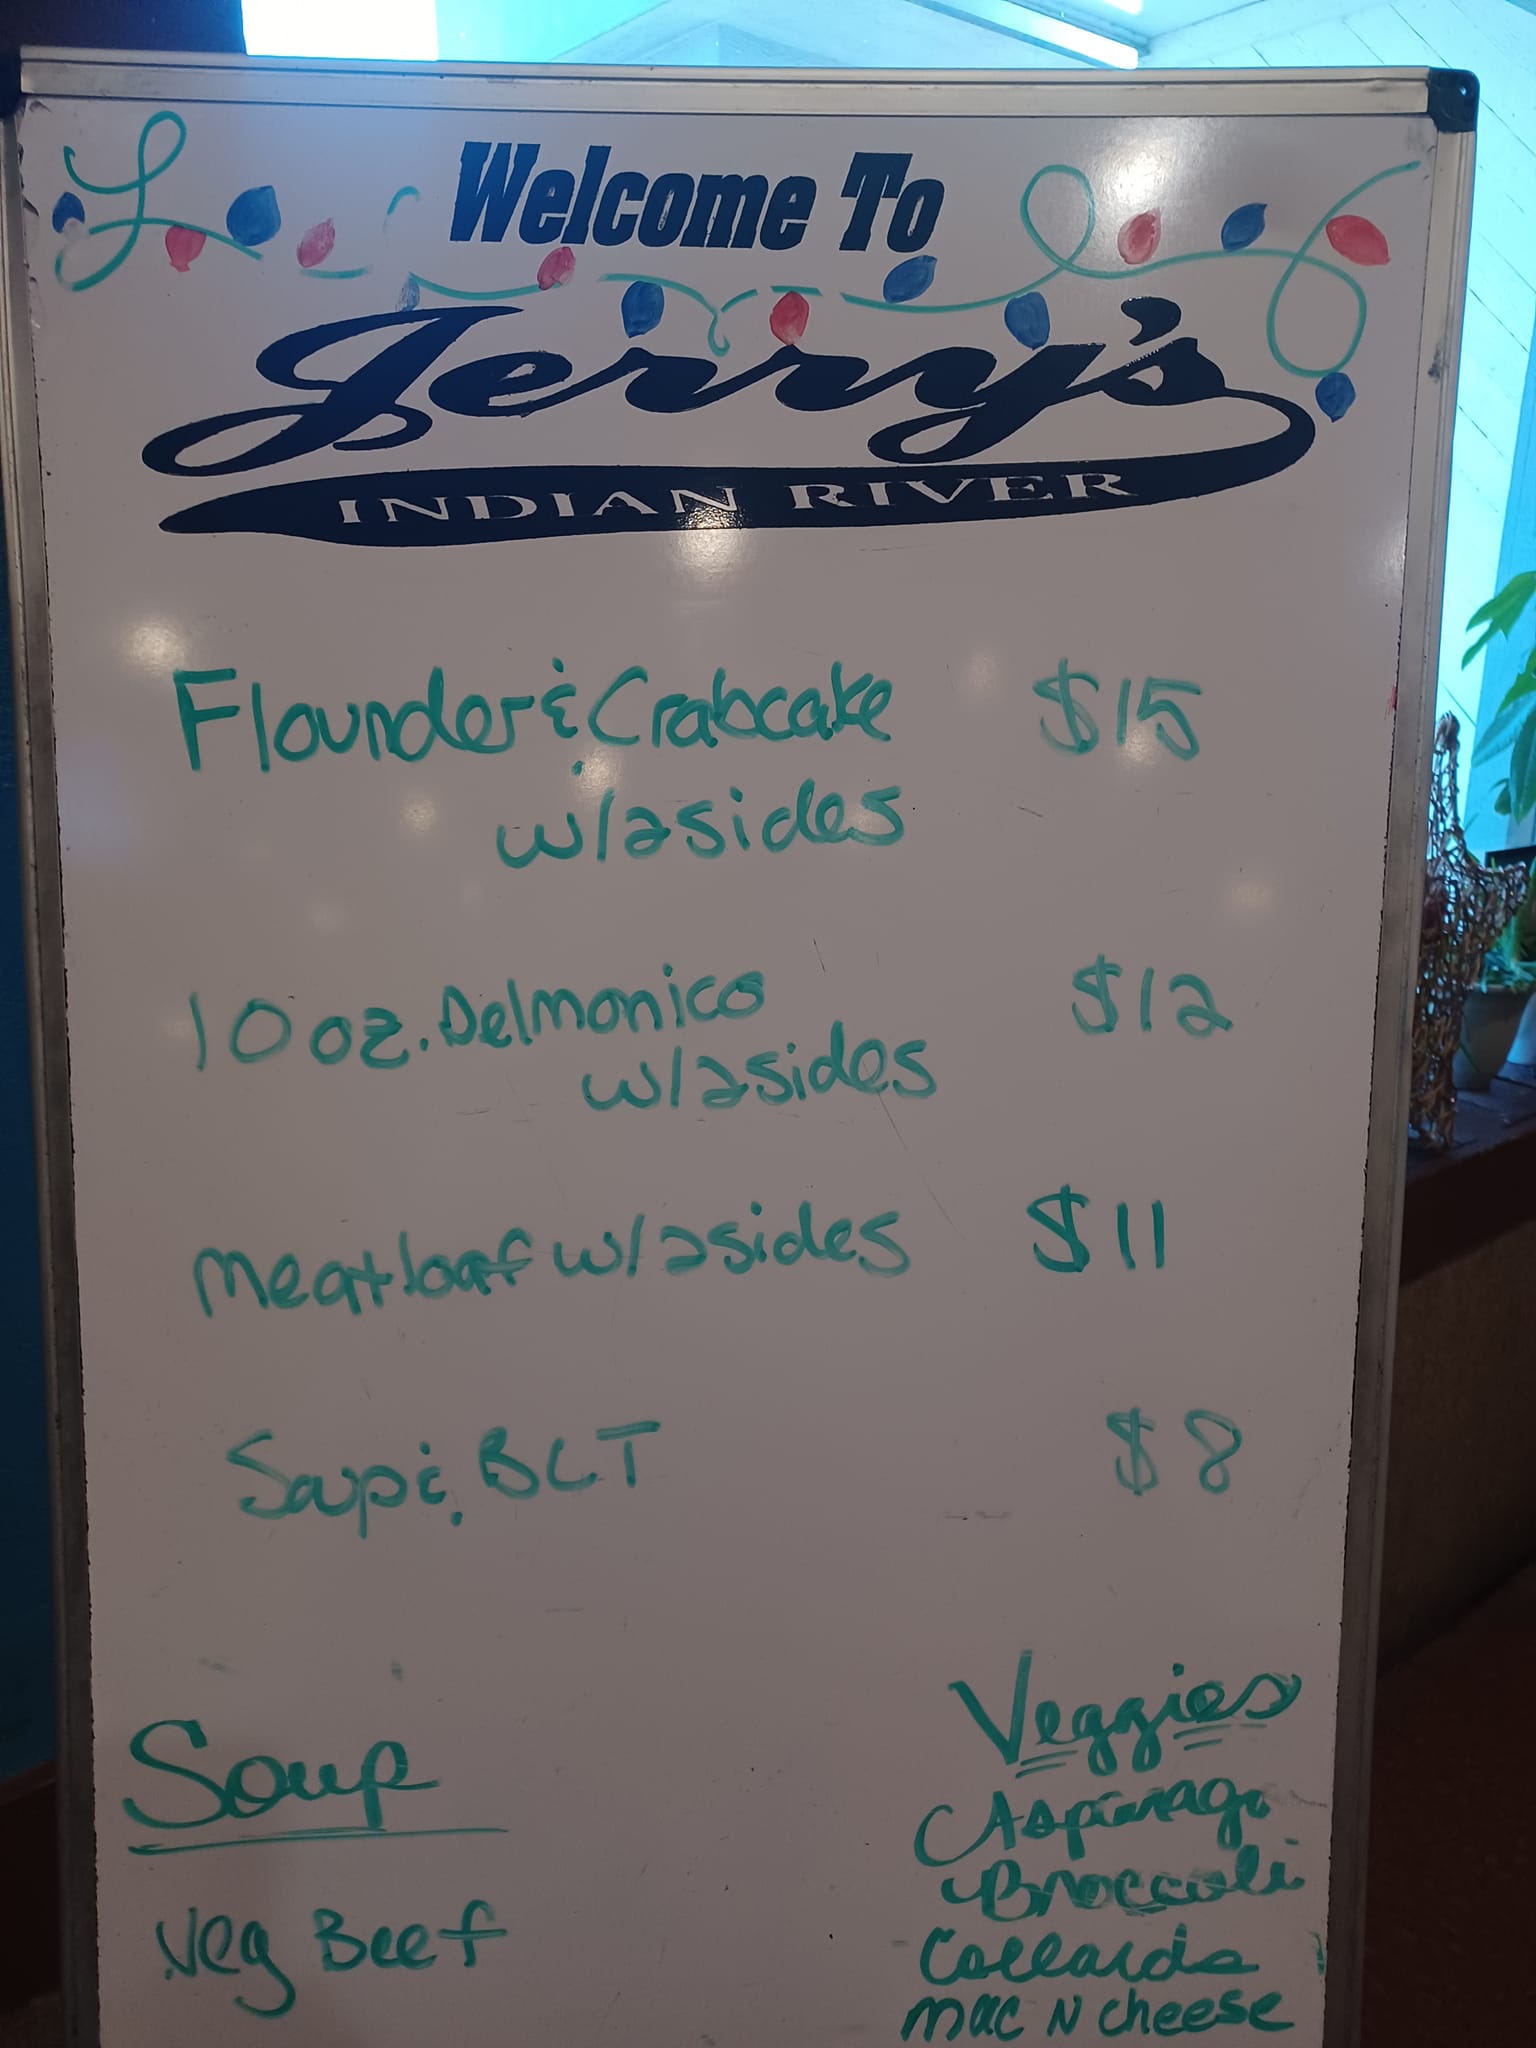 Welcome To
Jerry's
INDIAN RIVER
Flounder & Crabcake $15
w/2 sides
10 oz. Delmonico $12
w/2 sides
Meatloaf w/2 sides $11
Soup & BLT $8
Soup
Veg Beef
Veggies
Asparago
Broccoli
Collards
Mac N Cheese